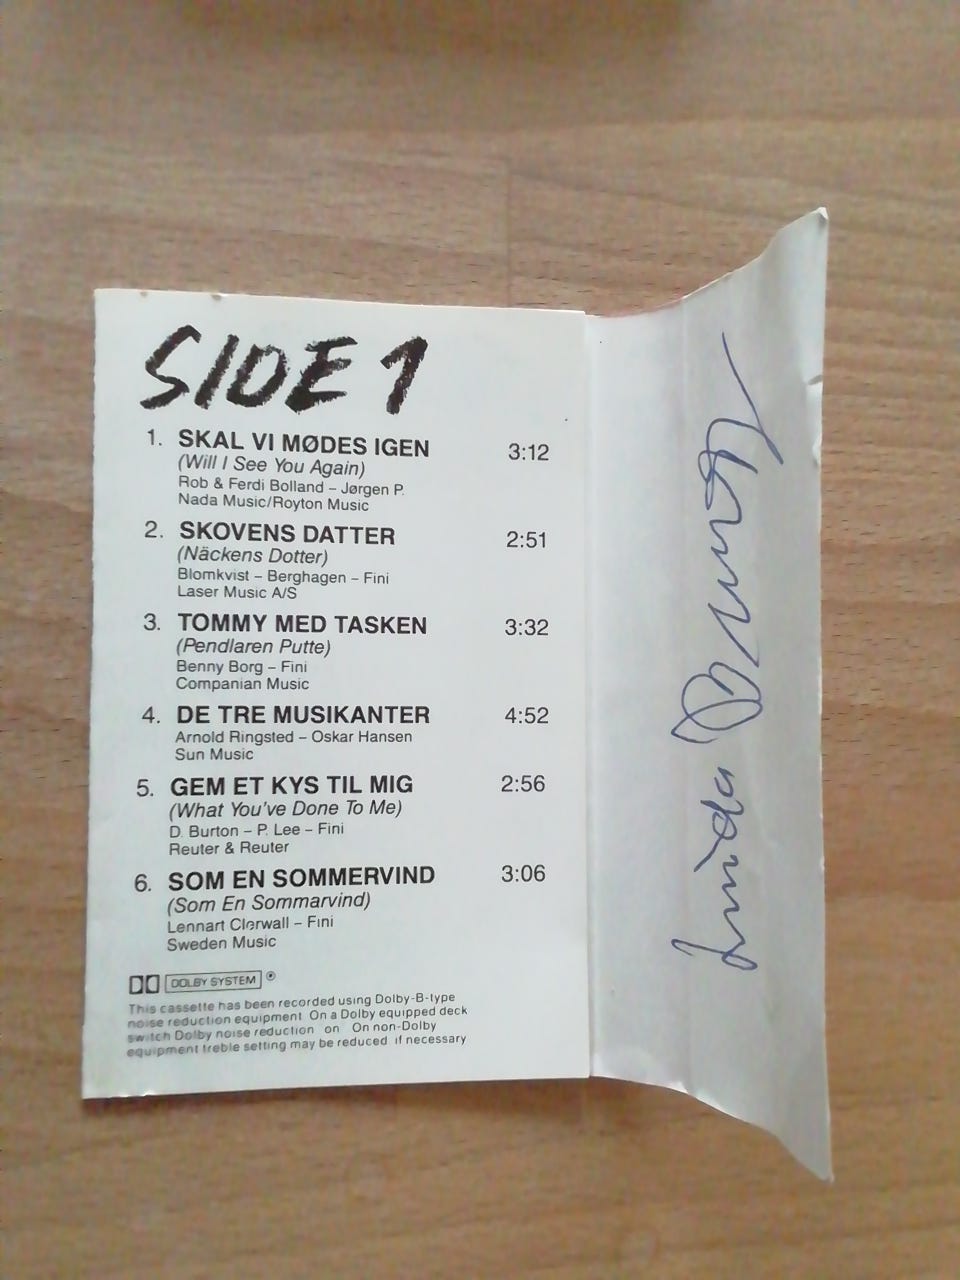 SIDE 1
1. SKAL VI MØDES IGEN 3:12
(Will I See You Again)
Rob & Ferdi Bolland – Jørgen P.
Nada Music/Royton Music
2. SKOVENS DATTER 2:51
(Näckens Dotter)
Blomkvist – Berghagen – Fini
Laser Music A/S
3. TOMMY MED TASKEN 3:32
(Pendlaren Putte)
Benny Borg – Fini
Companian Music
4. DE TRE MUSIKANTER 4:52
Arnold Ringsted – Oskar Hansen
Sun Music
5. GEM ET KYS TIL MIG 2:56
(What You've Done To Me)
D. Burton – P. Lee – Fini
Reuter & Reuter
6. SOM EN SOMMERVIND 3:06
(Som En Sommarvind)
Lennart Clerwall – Fini
Sweden Music
DOLBY SYSTEM ®
This cassette has been recorded using Dolby-B-type
noise reduction equipment On a Dolby equipped deck
switch Dolby noise reduction on On non-Dolby
equipment treble setting may be reduced if necessary